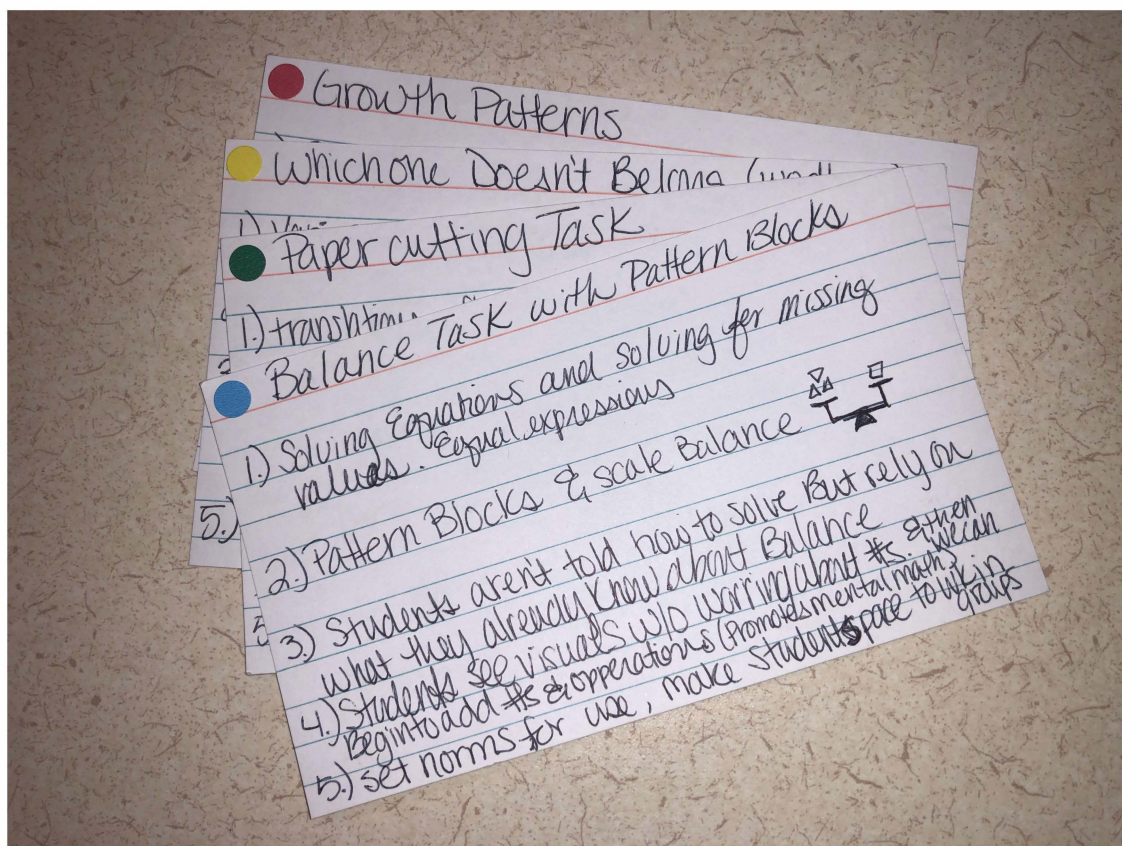 Growth Patterns
Which one Doesn't Belong
1.)
Paper cutting Task
1.)
Balance Task with Pattern Blocks
1.) Solving Equations and solving for missing
values. Equal expressions
2.) Pattern Blocks & scale Balance
3.) Students aren't told how to solve But rely on
what they already know about Balance
4.) Students see visuals w/o worring about #s. & then
Begin to add #s & opperations (Promotes mental math) we can
5.) set norms for use, make student space to wrk in
groups
5.)
5